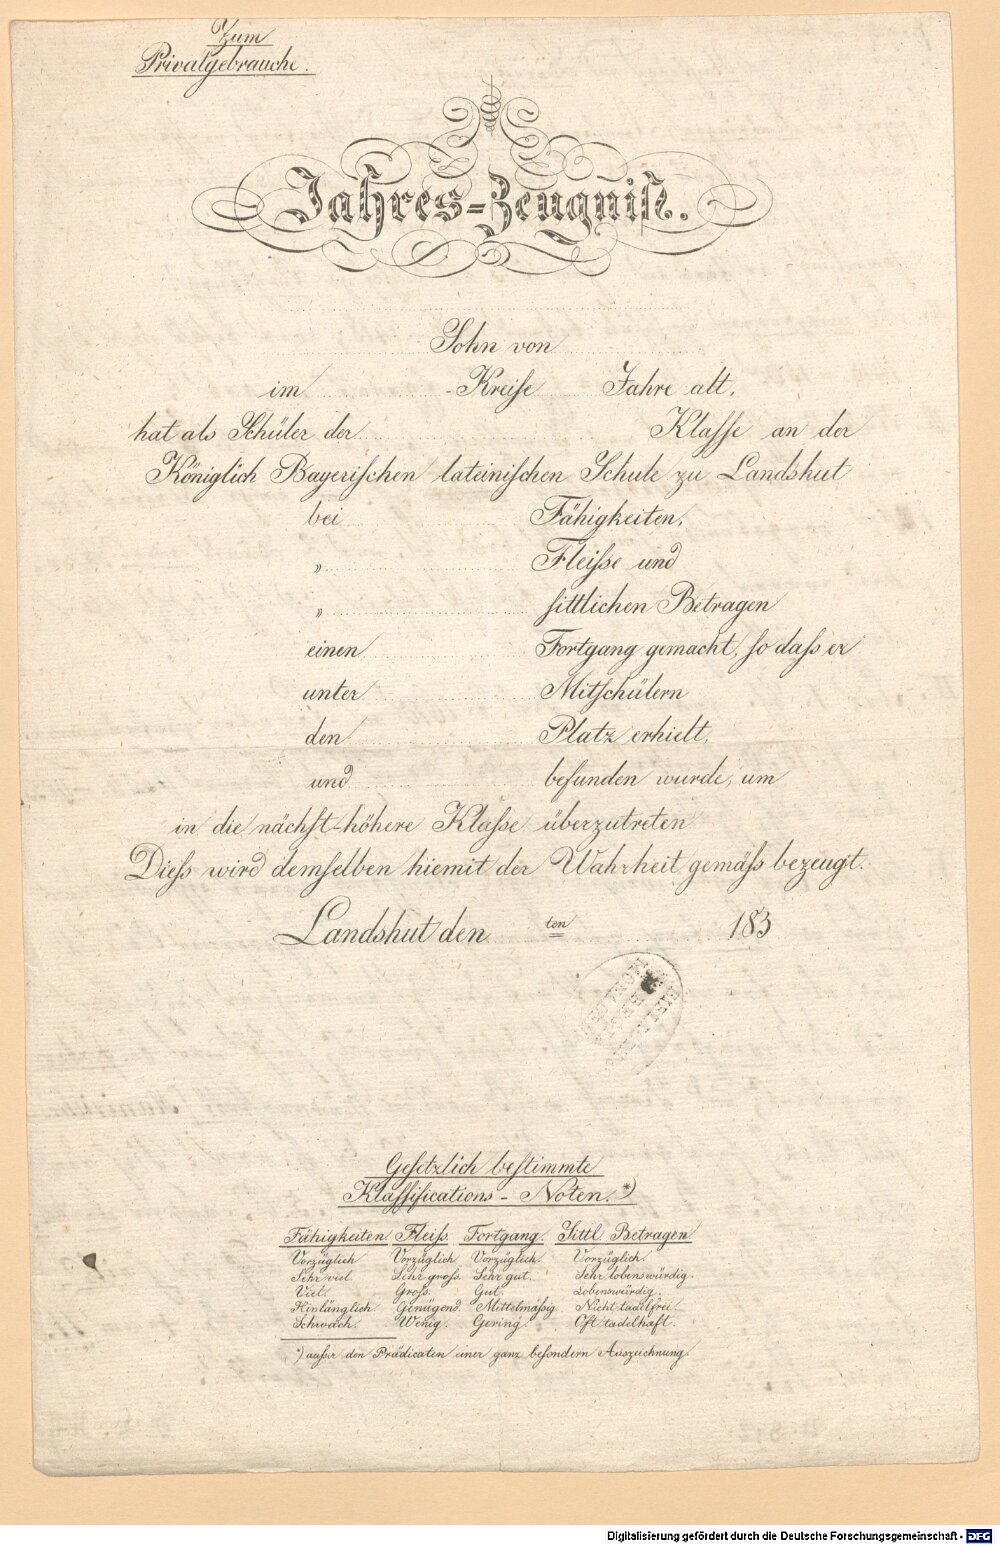 Zum
Privatgebrauche.
Jahres-Zeugniß.
Sohn von
im -Kreiſe Jahre alt,
hat als Schüler der Klaſſe an der
Königlich Bayeriſchen lateiniſchen Schule zu Landshut
bei Fähigkeiten,
„ Fleiſse und
„ ſittlichen Betragen
einen Fortgang gemacht, ſo daſs er
unter Mitſchülern
den Platz erhielt,
und befunden wurde, um
in die nächſt-höhere Klaſse überzutreten
Dieſs wird demſelben hiemit der Wahrheit gemäſs bezeugt.
Landshut den ten 183
Geſetzlich beſtimmte
Klaſſifications - Noten.*)
Fähigkeiten Fleiſs. Fortgang. Sittl Betragen
Vorzüglich Vorzüglich Vorzüglich. Vorzüglich.
Sehr viel. Sehr groſs. Sehr gut. Sehr lobenswürdig.
Viel. Groſs. Gut. Lobenswürdig.
Hinlänglich. Genügend. Mittelmäſsig. Nicht tadelfrei.
Schwach. Wenig. Gering. Oft tadelhaft.
*) auſser den Prädicaten einer ganz beſondern Auszeichnung.
Digitalisierung gefördert durch die Deutsche Forschungsgemeinschaft - DFG